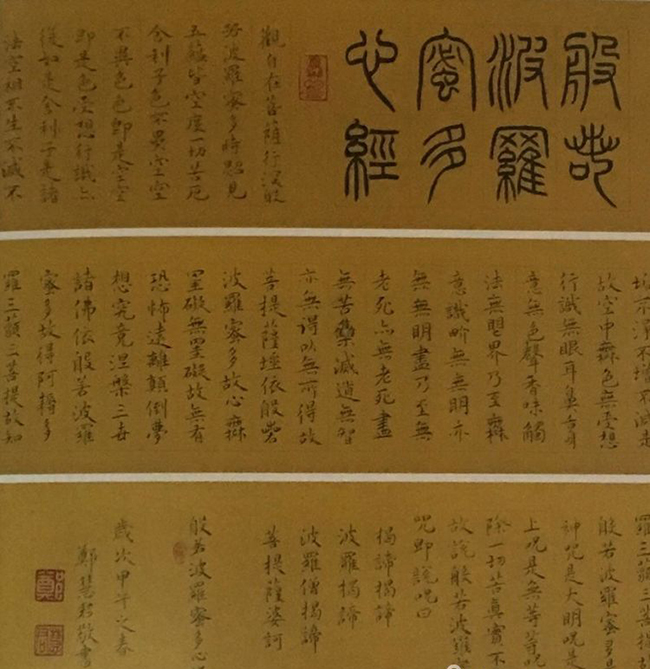 般若
波羅
蜜多
心經
觀自在菩薩行深般
若波羅蜜多時照見
五蘊皆空度一切苦厄
舍利子色不異空空
不異色色即是空空
即是色受想行識亦
復如是舍利子是諸
法空相不生不滅不
垢不淨不增不減是
故空中無色無受想
行識無眼耳鼻舌身
意無色聲香味觸
法無眼界乃至無
意識界無無明亦
無無明盡乃至無
老死亦無老死盡
無苦集滅道無智
亦無得以無所得故
菩提薩埵依般若
波羅蜜多故心無
罣礙無罣礙故無有
恐怖遠離顛倒夢
想究竟涅槃三世
諸佛依般若波羅
蜜多故得阿耨多
羅三藐三菩提故知
羅三藐三菩提故
般若波羅蜜多是
神咒是大明咒是
上咒是無等等咒
除一切苦真實不
故說般若波羅蜜
咒即說咒曰
揭諦揭諦
波羅揭諦
波羅僧揭諦
菩提薩婆訶
般若波羅蜜多心
歲次甲午之春
鄭慧敬書
鄭